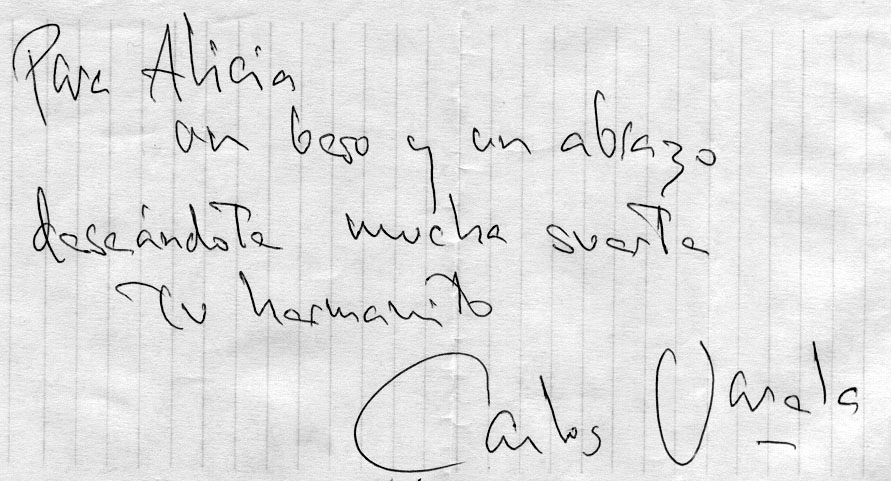 Para Alicia
un beso y un abrazo
deseándote mucha suerte
tu hermanito
Carlos Varela